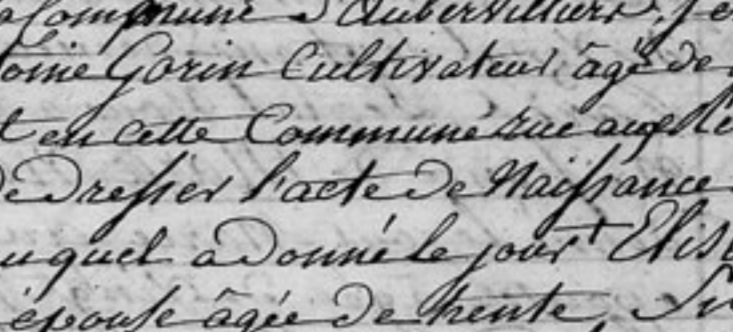 Commune d'Aubervilliers, 
oine Gorin Cultivateur, âgé de
t en cette Commune rue aux
de Dresser l'acte de Naissance
uquel a Donné le jour + Elis
épouse âgée de trente,